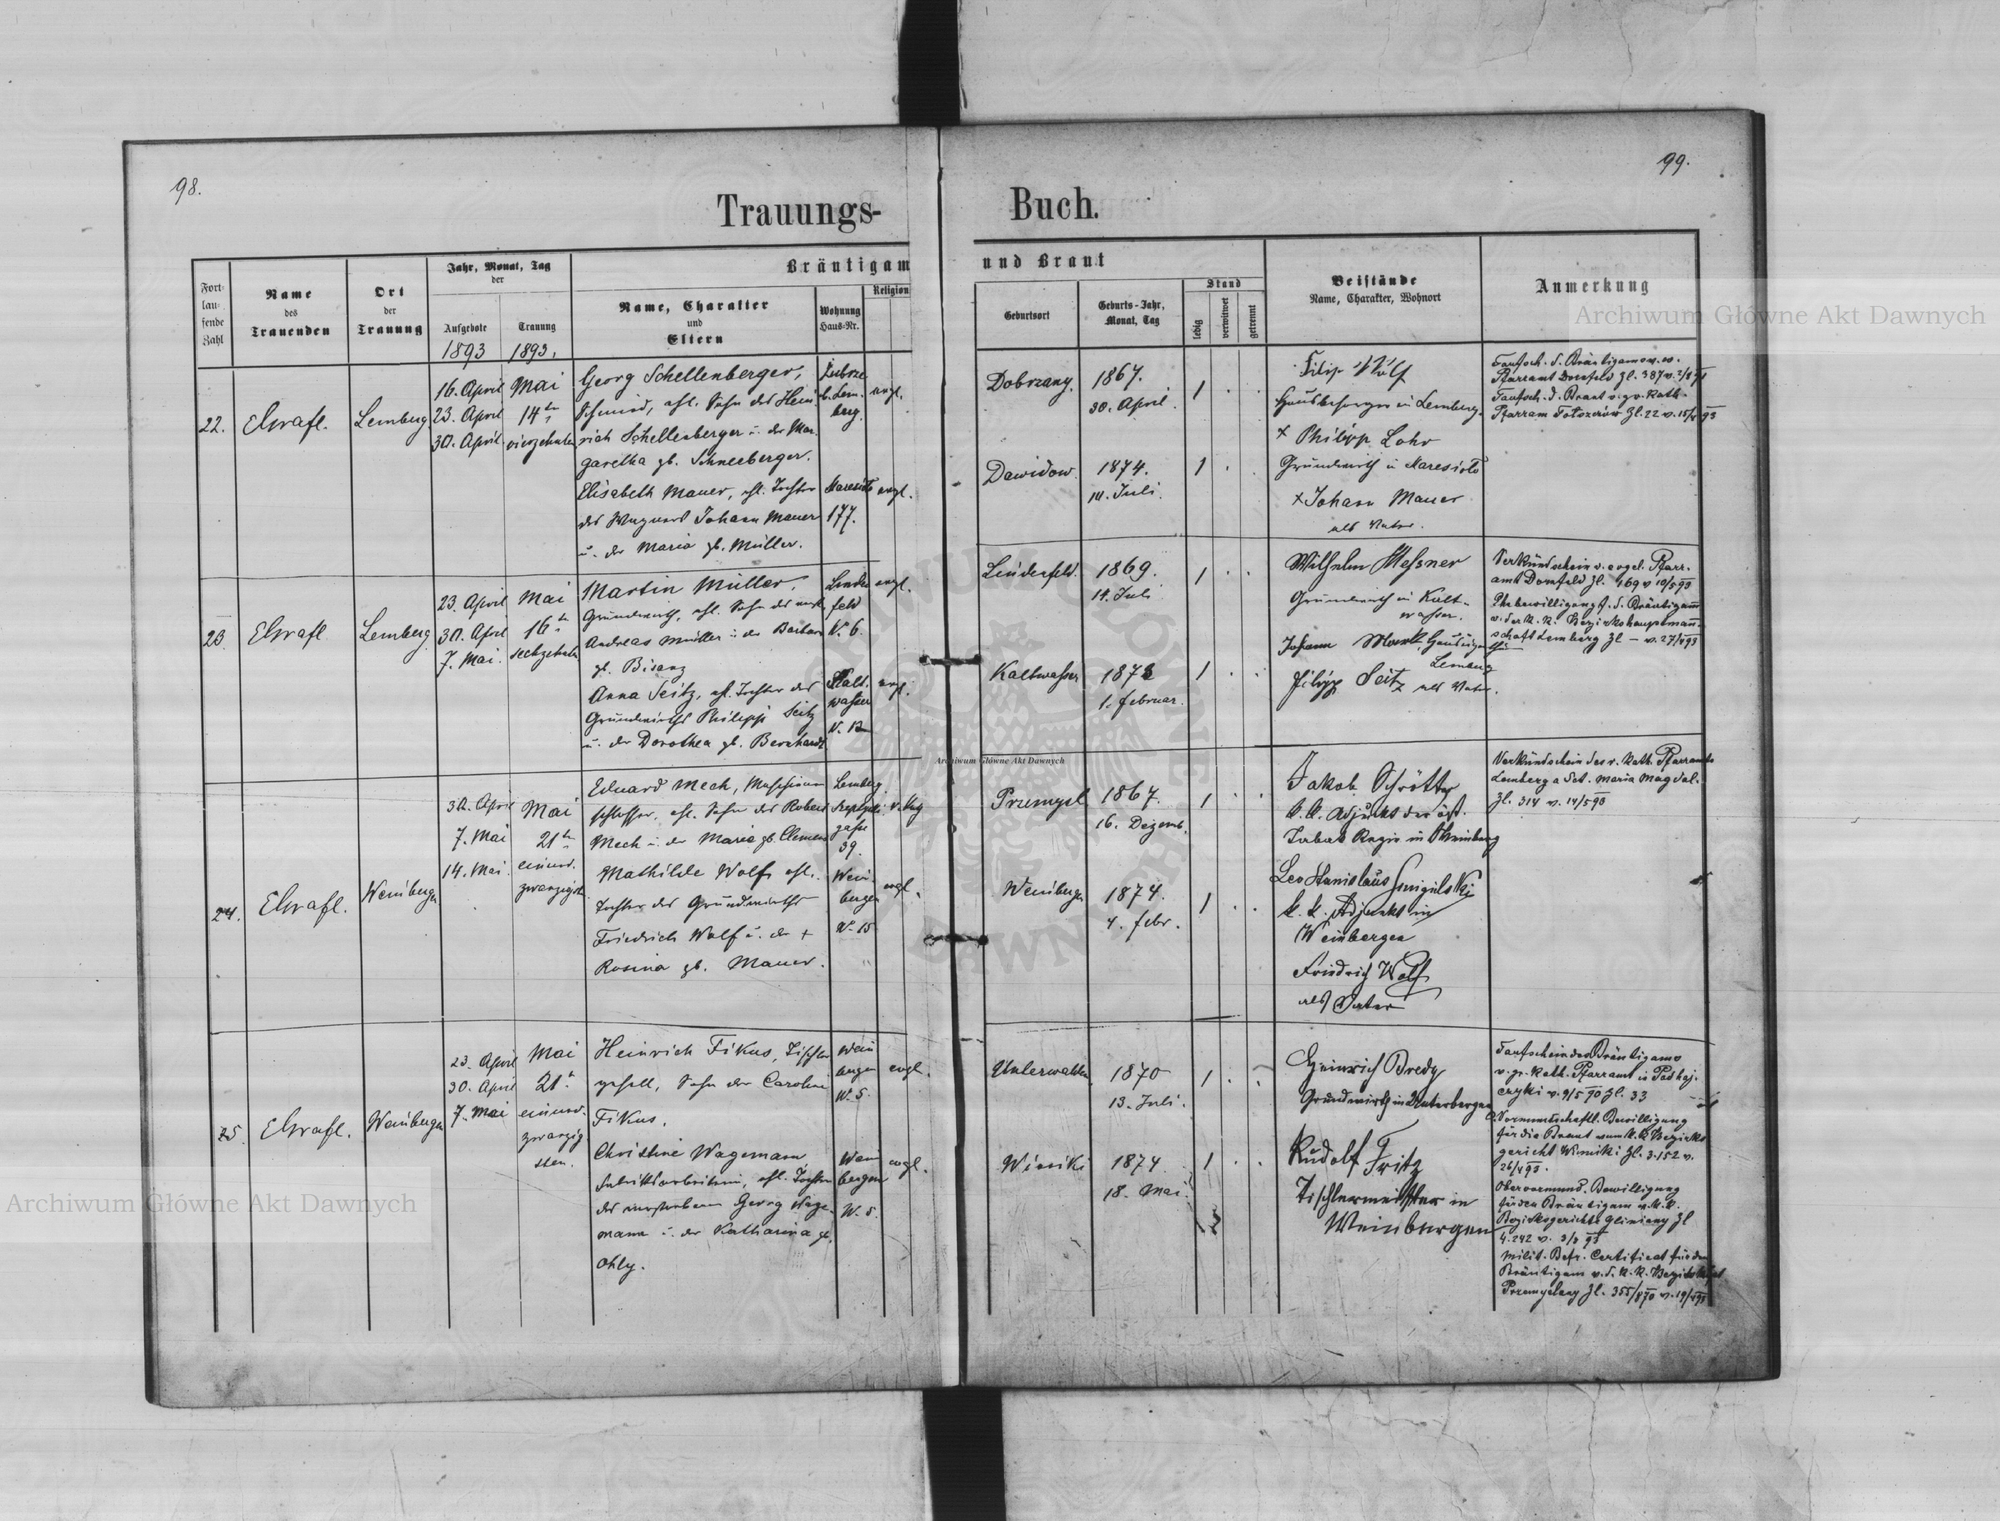 98.
99.
Trauungs-
Buch.
Fort-
lau-
fende
Zahl
Name
des
Trauenden
Ort
der
Trauung
Jahr, Monat, Tag
der
Aufgebote
Trauung
1893
1893.
Bräutigam
Name, Charakter
und
Eltern
Wohnung
Haus-Nr.
Religion
und Braut
Geburtsort
Geburts-Jahr,
Monat, Tag
Stand
ledig
verwitwet
getrennt
Beistände
Name, Charakter, Wohnort
Anmerkung
22.
Lemberg
16. April
23. April
30. April
Mai
14te
vierzehnten
Georg Schellenberger,
Schmied, ehl. Sohn des Hein
rich Schellenberger u. der Mar-
garetha gb. Schneeberger.
b. Lem-
berg.
evgl.
Elisabeth Mauer, ehl. Tochter
des Wagners Johann Mauer
u. der Maria gb. Müller.
177.
evgl.
Dobrzany.
1867.
30. April.
1
Dawidow
1874.
14. Juli.
1
Filip
in Lemberg.
+ Philipp Lohr
Grundwirth in
+ Johann Mauer
als Vater.
Taufsch. d. Bräutigams v. ev.
Pfarramt Dornfeld Zl. 387
Taufsch. d. Braut v. gr. Kath.
23.
Lemberg
23. April
30. April
7. Mai.
Mai
16te
sechzehnten
Martin Müller,
Grundwirth, ehl. Sohn des
Andreas Müller u. der Barbara
gb. Bisanz
Linden
feld
N. 6.
evgl.
Anna Seitz, ehl. Tochter des
Grundwirths Philipp Seitz
u. der Dorothea gb. Bernhardt
Kalt-
wasser
evgl.
Lindenfeld.
1869.
14. Juli
1
Kaltwasser
1. Februar.
1
Wilhelm Meßner
Grundwirth in Kalt-
wasser.
Johann
Lemberg
Filipp Seitz als Vater.
Verkündschein v. evgel. Pfarr-
amt Dornfeld Zl. 469 v 10/5 93
Ehebewilligung f. d. Bräutigam
v. der K. K. Bezirkshauptmann-
schaft Lemberg Zl — v. 27/4 93
24.
Weinbergen
30. April
7. Mai
14. Mai.
Mai
21te
einund-
zwanzigsten
Eduard Mech, Maschinen
schlosser, ehl. Sohn des Robert
Mech u. der Maria gb. Clemens
Lemberg
gasse
39.
Mathilde Wolf, ehl.
Tochter des Grundwirths
Friedrich Wolf u. der +
Rosina gb. Mauer.
Wein-
bergen
No. 15
evgl.
Przemysl
1867.
16. Dezemb.
1
Weinbergen
1874.
4. Febr.
1
Jakob Schrötter
k. k. Adjunkt der öst.
Tabak Regie in
Leo Stanislaus Smigielski
k. k. Adjunkt in
Weinbergen
Friedrich Wolf
als Vater
Verkündschein des r. Kath. Pfarramts
Lemberg a Sct. Maria Magdal.
Zl. 314 v. 14/5 93
25.
Weinbergen
23. April
30. April
7. Mai
Mai
21t
einund-
zwanzig
sten.
Heinrich Fikus, Tischler
gesell, Sohn der Caroline
Fikus.
Wein
bergen
N. 5.
evgl.
Christine Wagemann
Fabriksarbeiterin, ehl. Tochter
des verstorbenen Georg Wage-
mann u. der Katharina gb.
Ohly.
Wein
bergen
N. 5.
evgl.
Unterwalden
1870
13. Juli.
1
Winniki
1874
18. Mai.
1
Heinrich Bredy
Grundwirth in Unterbergen
Rudolf Fritz
Tischlermeister in
Weinbergen
Taufschein des Bräutigams
v. gr. Kath. Pfarramt in Podhaj-
czyki v. 9/5 90 Zl. 33
Vormundschaftl. Bewilligung
für die Braut vom K. K. Bezirks
gericht Winniki Zl. 3152 v.
26/4 93.
Obervormund. Bewilligung
für den Bräutigam v. K. K.
Bezirksgerichte Gliniany Zl
4.242 v.
Milit. Befr. Certificat für den
Bräutigam v. d. K. K.
Przemyslany Zl. 355/870 v. 19/4 93
Archiwum Główne Akt Dawnych
Archiwum Główne Akt Dawnych
Archiwum Główne Akt Dawnych